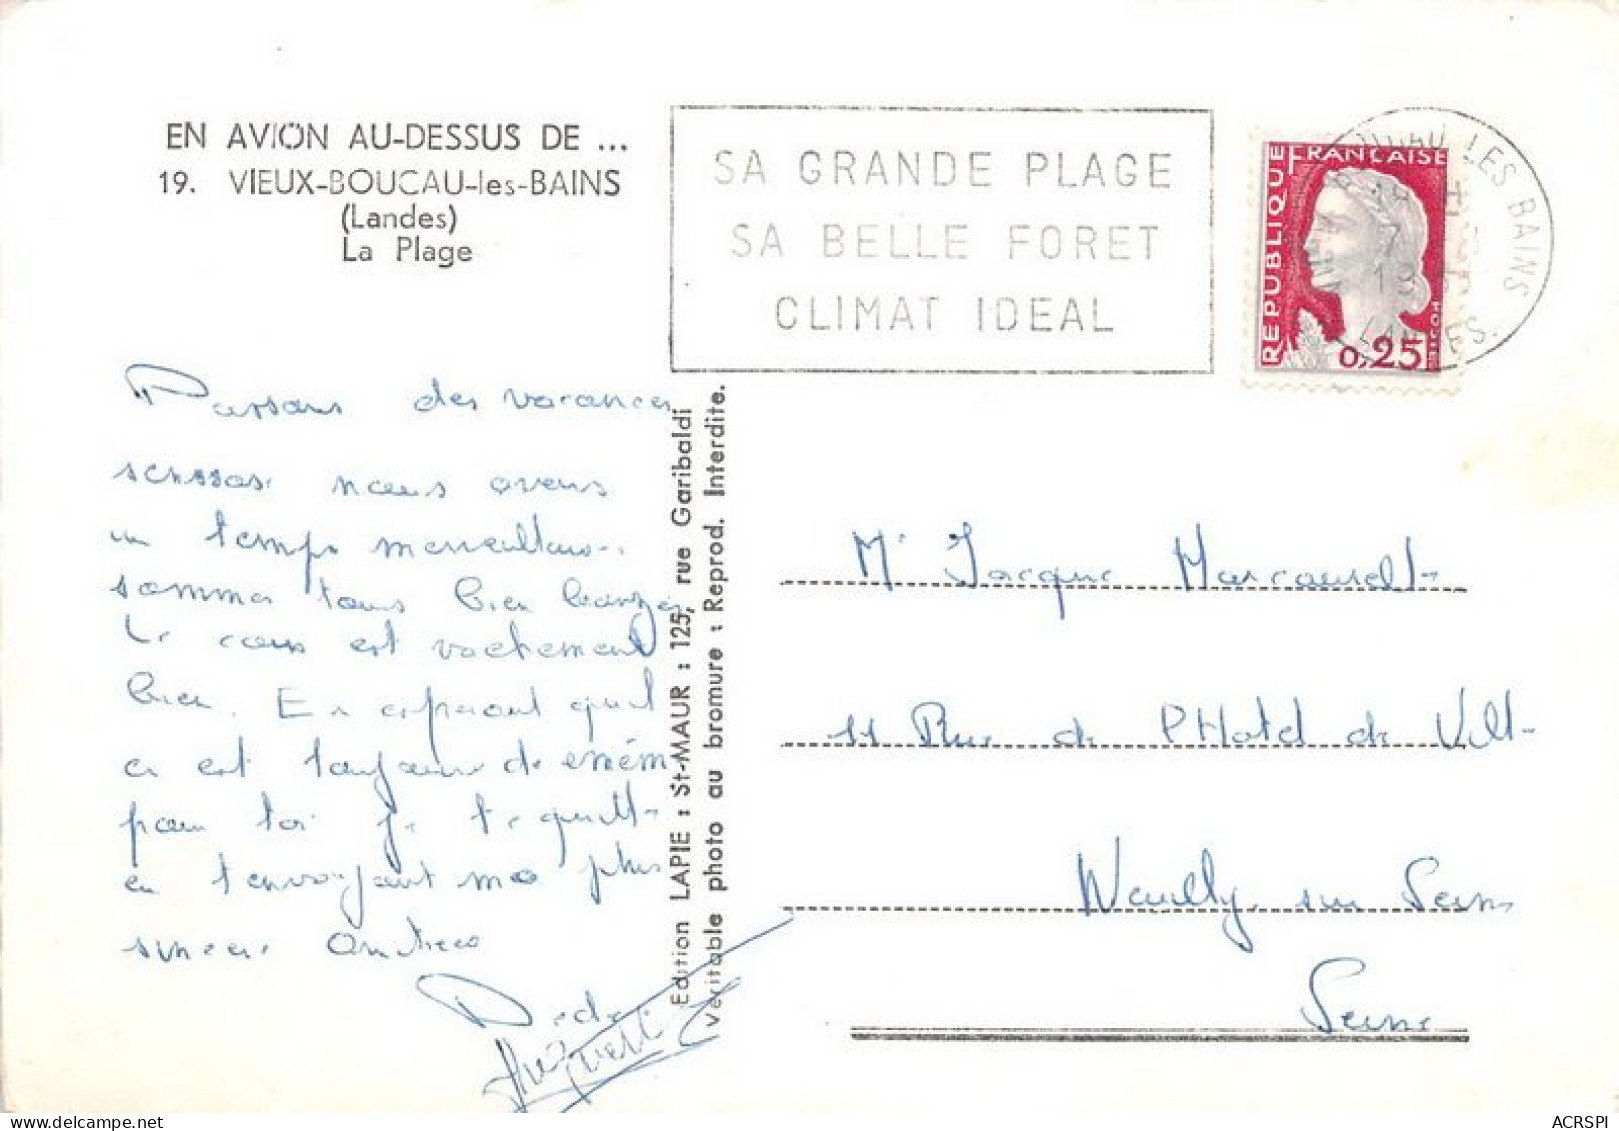 EN AVION AU-DESSUS DE ...
19. VIEUX-BOUCAU-les-BAINS
(Landes)
La Plage
SA GRANDE PLAGE
SA BELLE FORET
CLIMAT IDEAL
REPUBLIQUE FRANÇAISE
0,25
LES BAINS
Passons des vacances
nous avons
un temps
sommes tous bien bronzés
Le cous est vachement
bien. En esperant qu'il
en est toujours de même
pour toi je te quitte
en t'envoyant ma plus
sincere
Dede
Huguette
Edition LAPIE : St-MAUR : 125, rue Garibaldi
Véritable photo au bromure : Reprod. Interdite.
Mr Jacque
11 Rue de l'Hotel de Ville
Neuilly sur Seine
Seine
ACRSPI